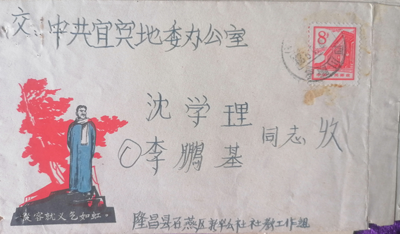 交：中共宜宾地委办公室
8分
沈学理
李鹏基 同志 收
从容就义色如虹
隆昌县石燕区新华公社社教工作组